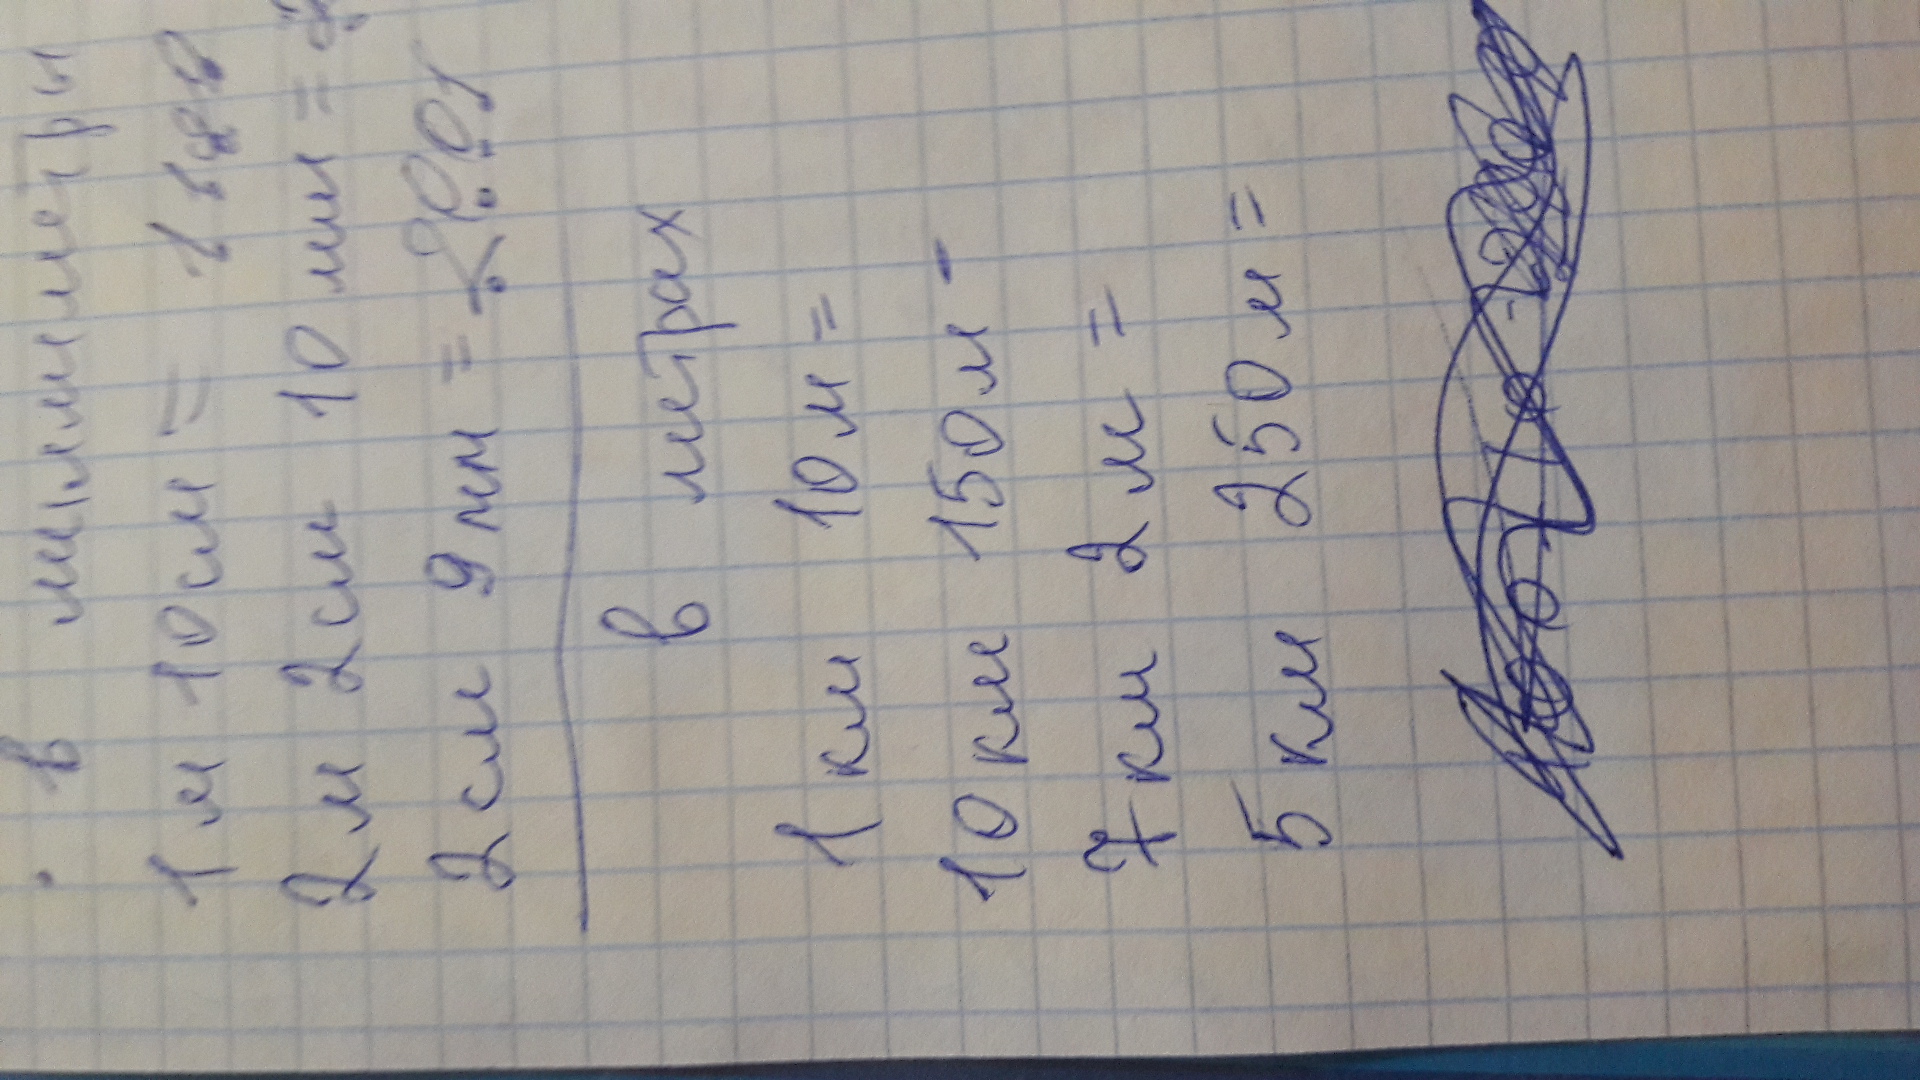 в миллиметры
1м 10см =
2м 2см 10мм =
2см 9мм =
в метрах
1км 10м =
10км 150м -
7км 2м =
5км 250м =